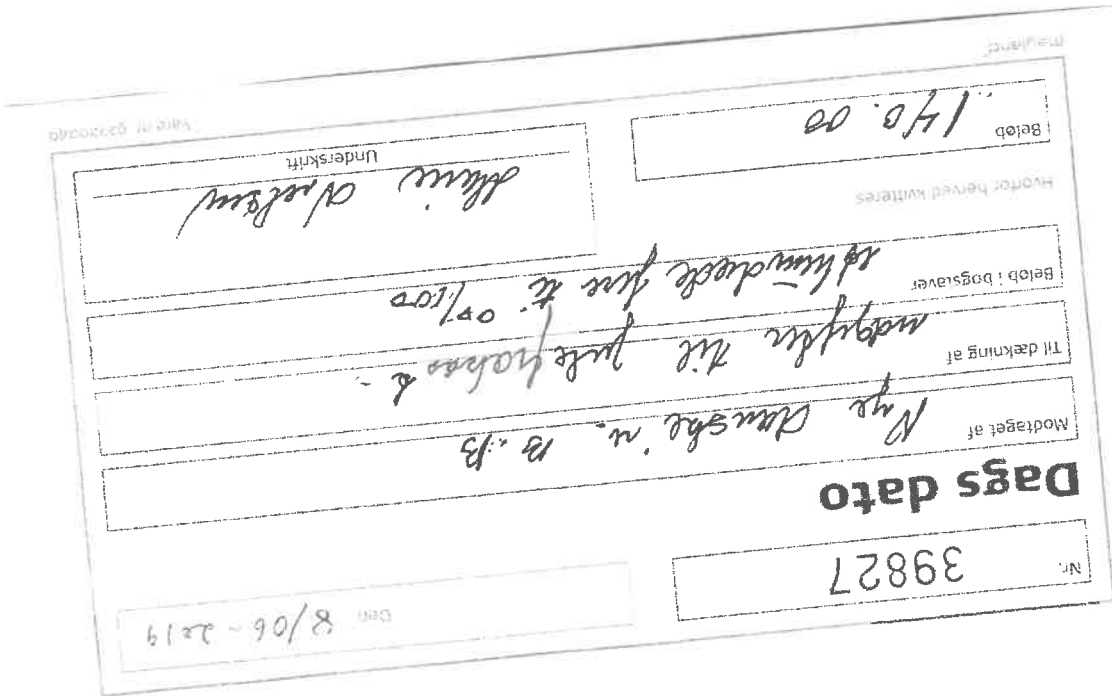 Nr. 39827
Den 8/06-2019
Dags dato
Modtaget af Nye danske i B.B
Til dækning af udgifter til jule
Beløb i bogstaver ethundrede fire ti 00/100
Hvorfor herved kvitteres
Beløb 140.00
Marie
Underskrift
mayland
Vare nr